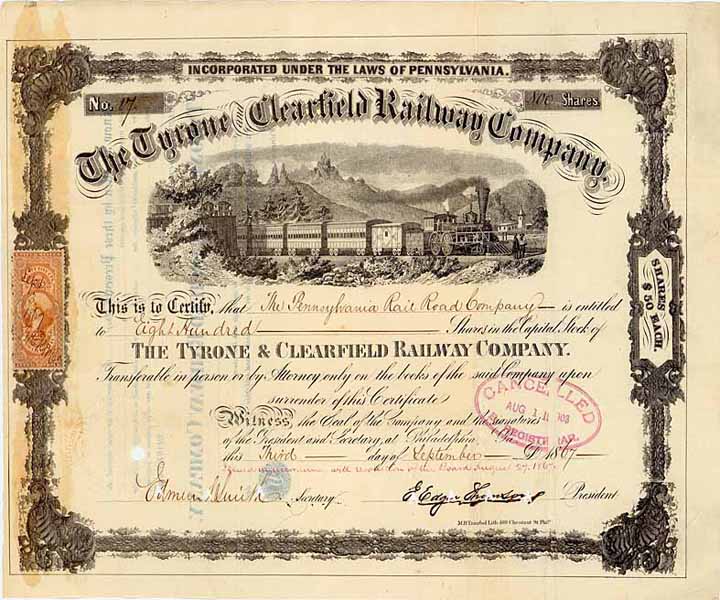 INCORPORATED UNDER THE LAWS OF PENNSYLVANIA.
No. 17
800 Shares
The Tyrone & Clearfield Railway Company.
SHARES $50 EACH.
This is to Certify, that The Pennsylvania Rail Road Company is entitled
to Eight Hundred Shares in the Capital Stock of
THE TYRONE & CLEARFIELD RAILWAY COMPANY.
Transferable in person or by Attorney only on the books of the said Company upon
surrender of this Certificate
Witness the Seal of the Company and the signatures
of the President and Secretary, at Philadelphia, Pa.
this Third day of September 1867
will resolution of the Board August 27. 1867
CANCELLED
AUG 1
REGISTRAR.
Edmund Smith Secretary
President
M.H Traubel Lith. 409 Chestnut St. Phila